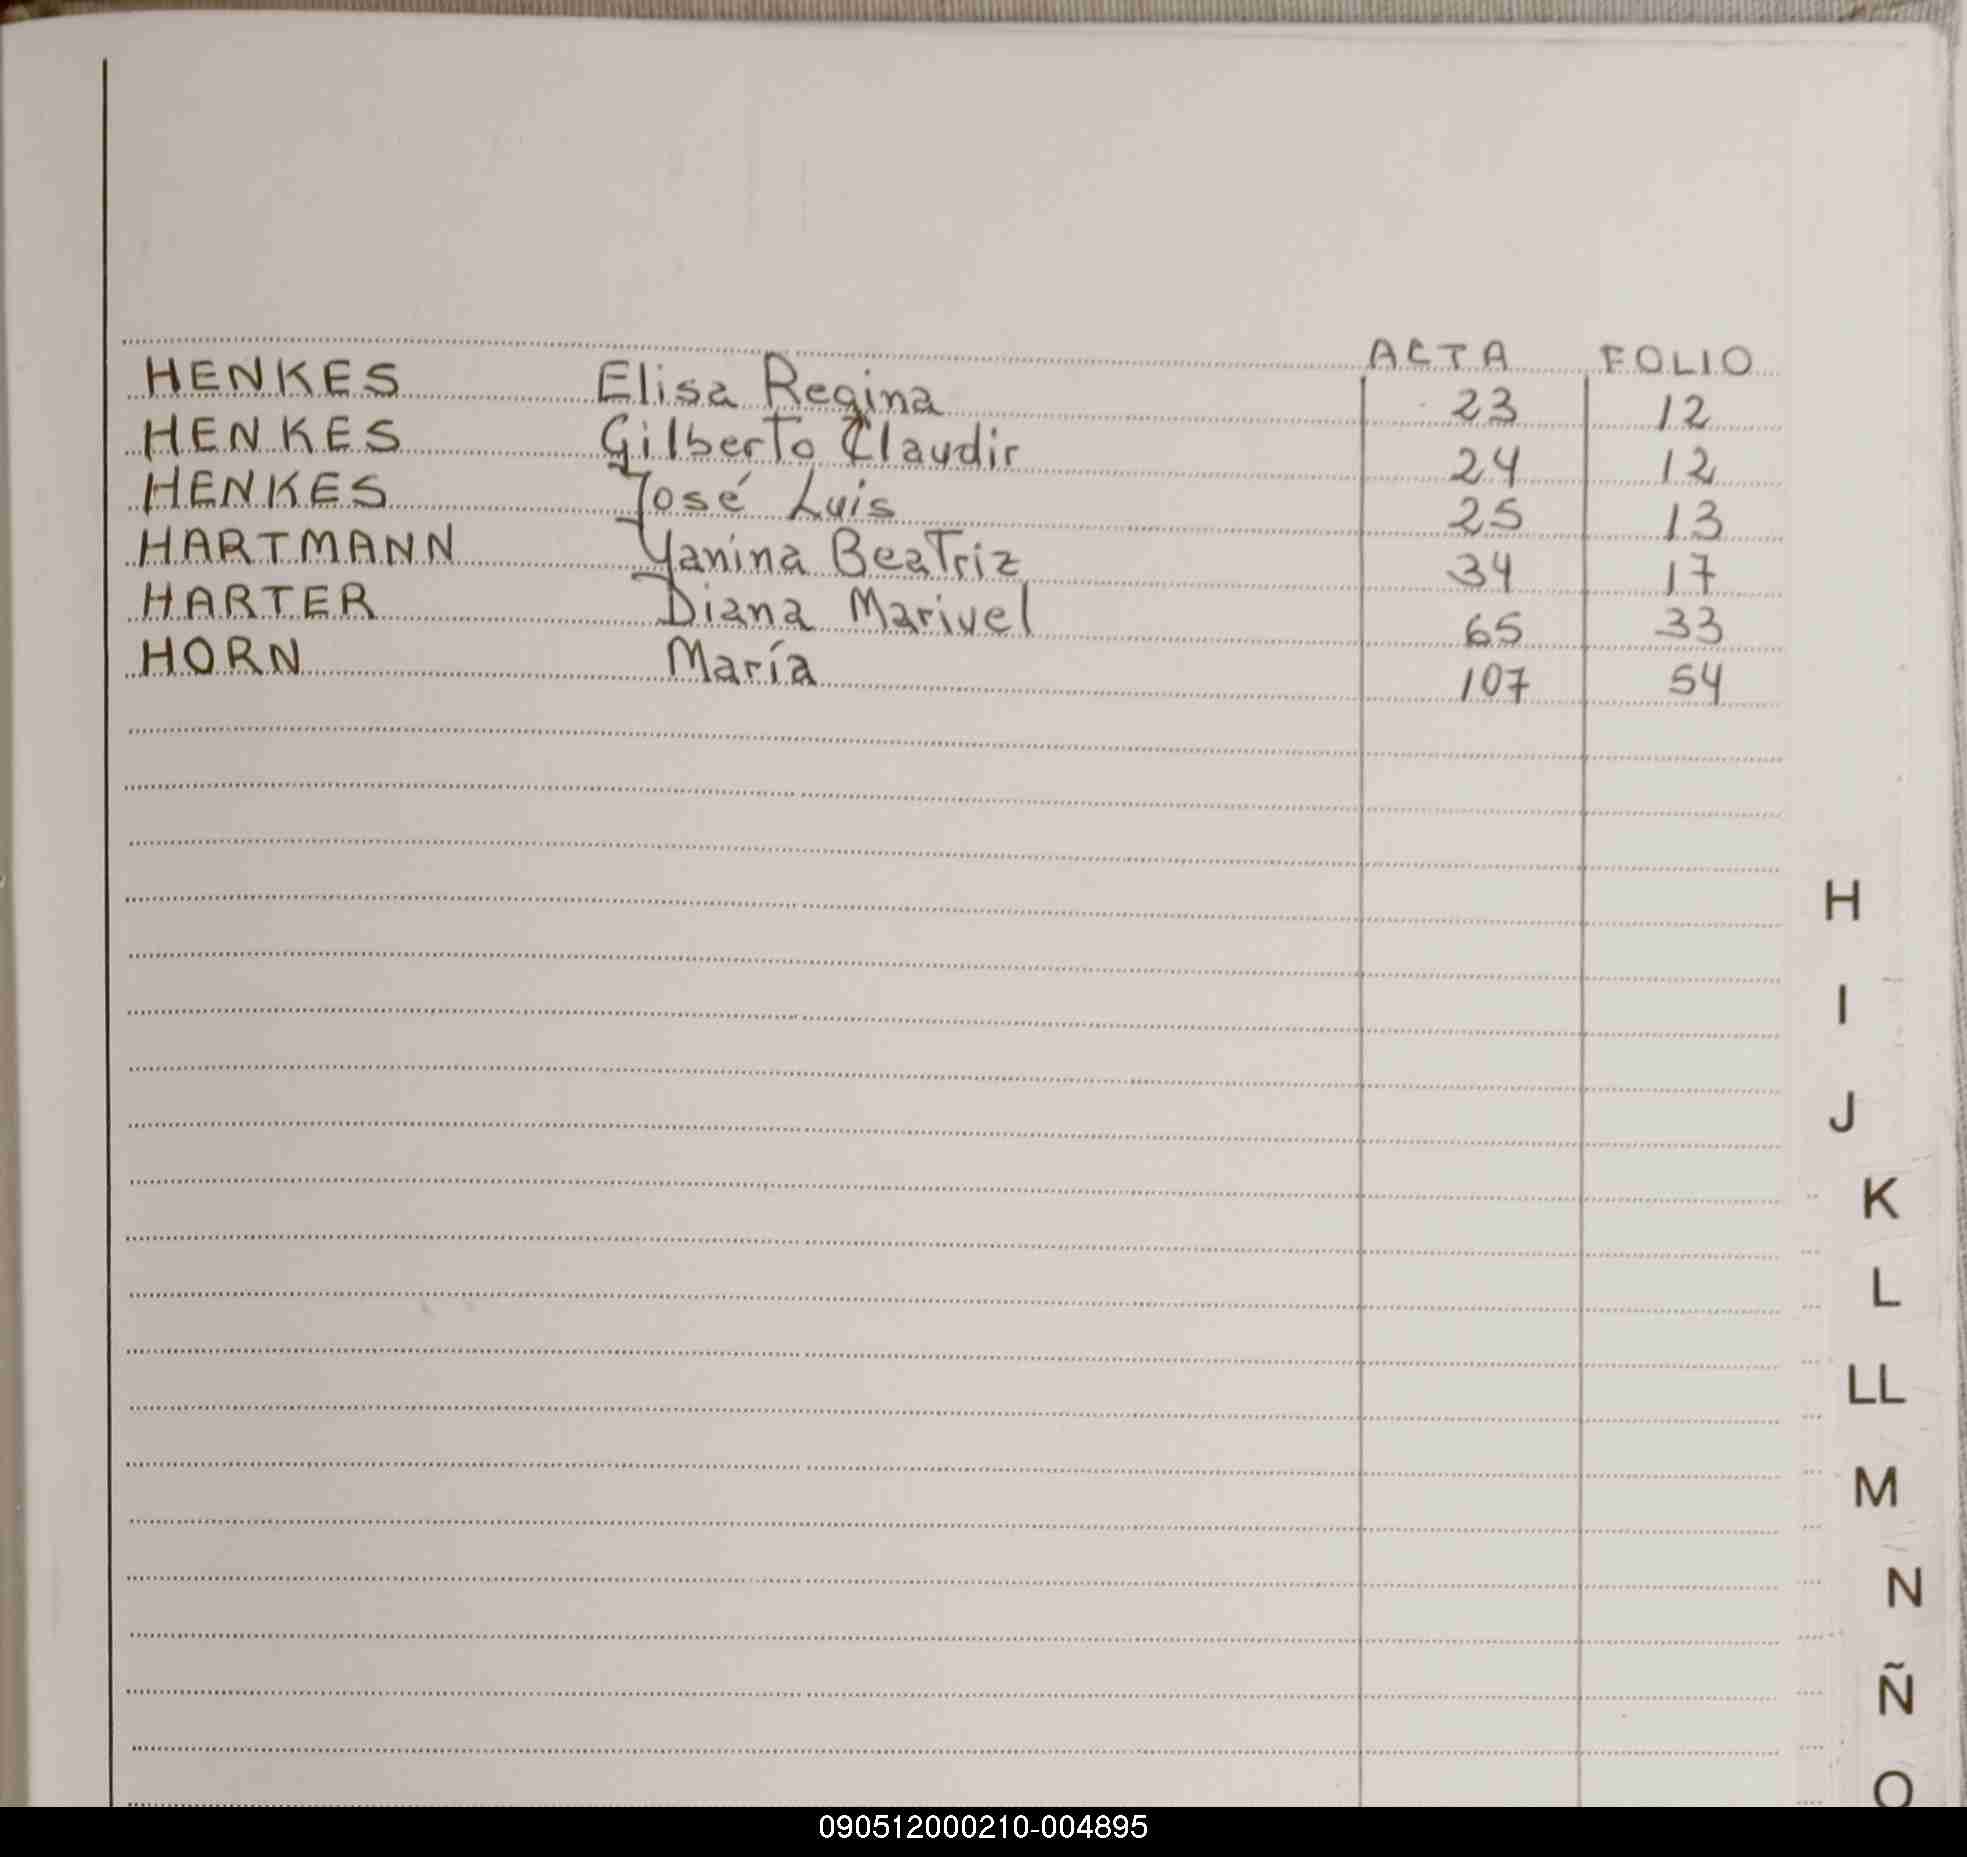 ACTA FOLIO
HENKES Elisa Regina 23 12
HENKES Gilberto Claudir 24 12
HENKES José Luis 25 13
HARTMANN Yanina Beatriz 34 17
HARTER Diana Marivel 65 33
HORN María 107 54
H
I
J
K
L
LL
M
N
Ñ
O
090512000210-004895